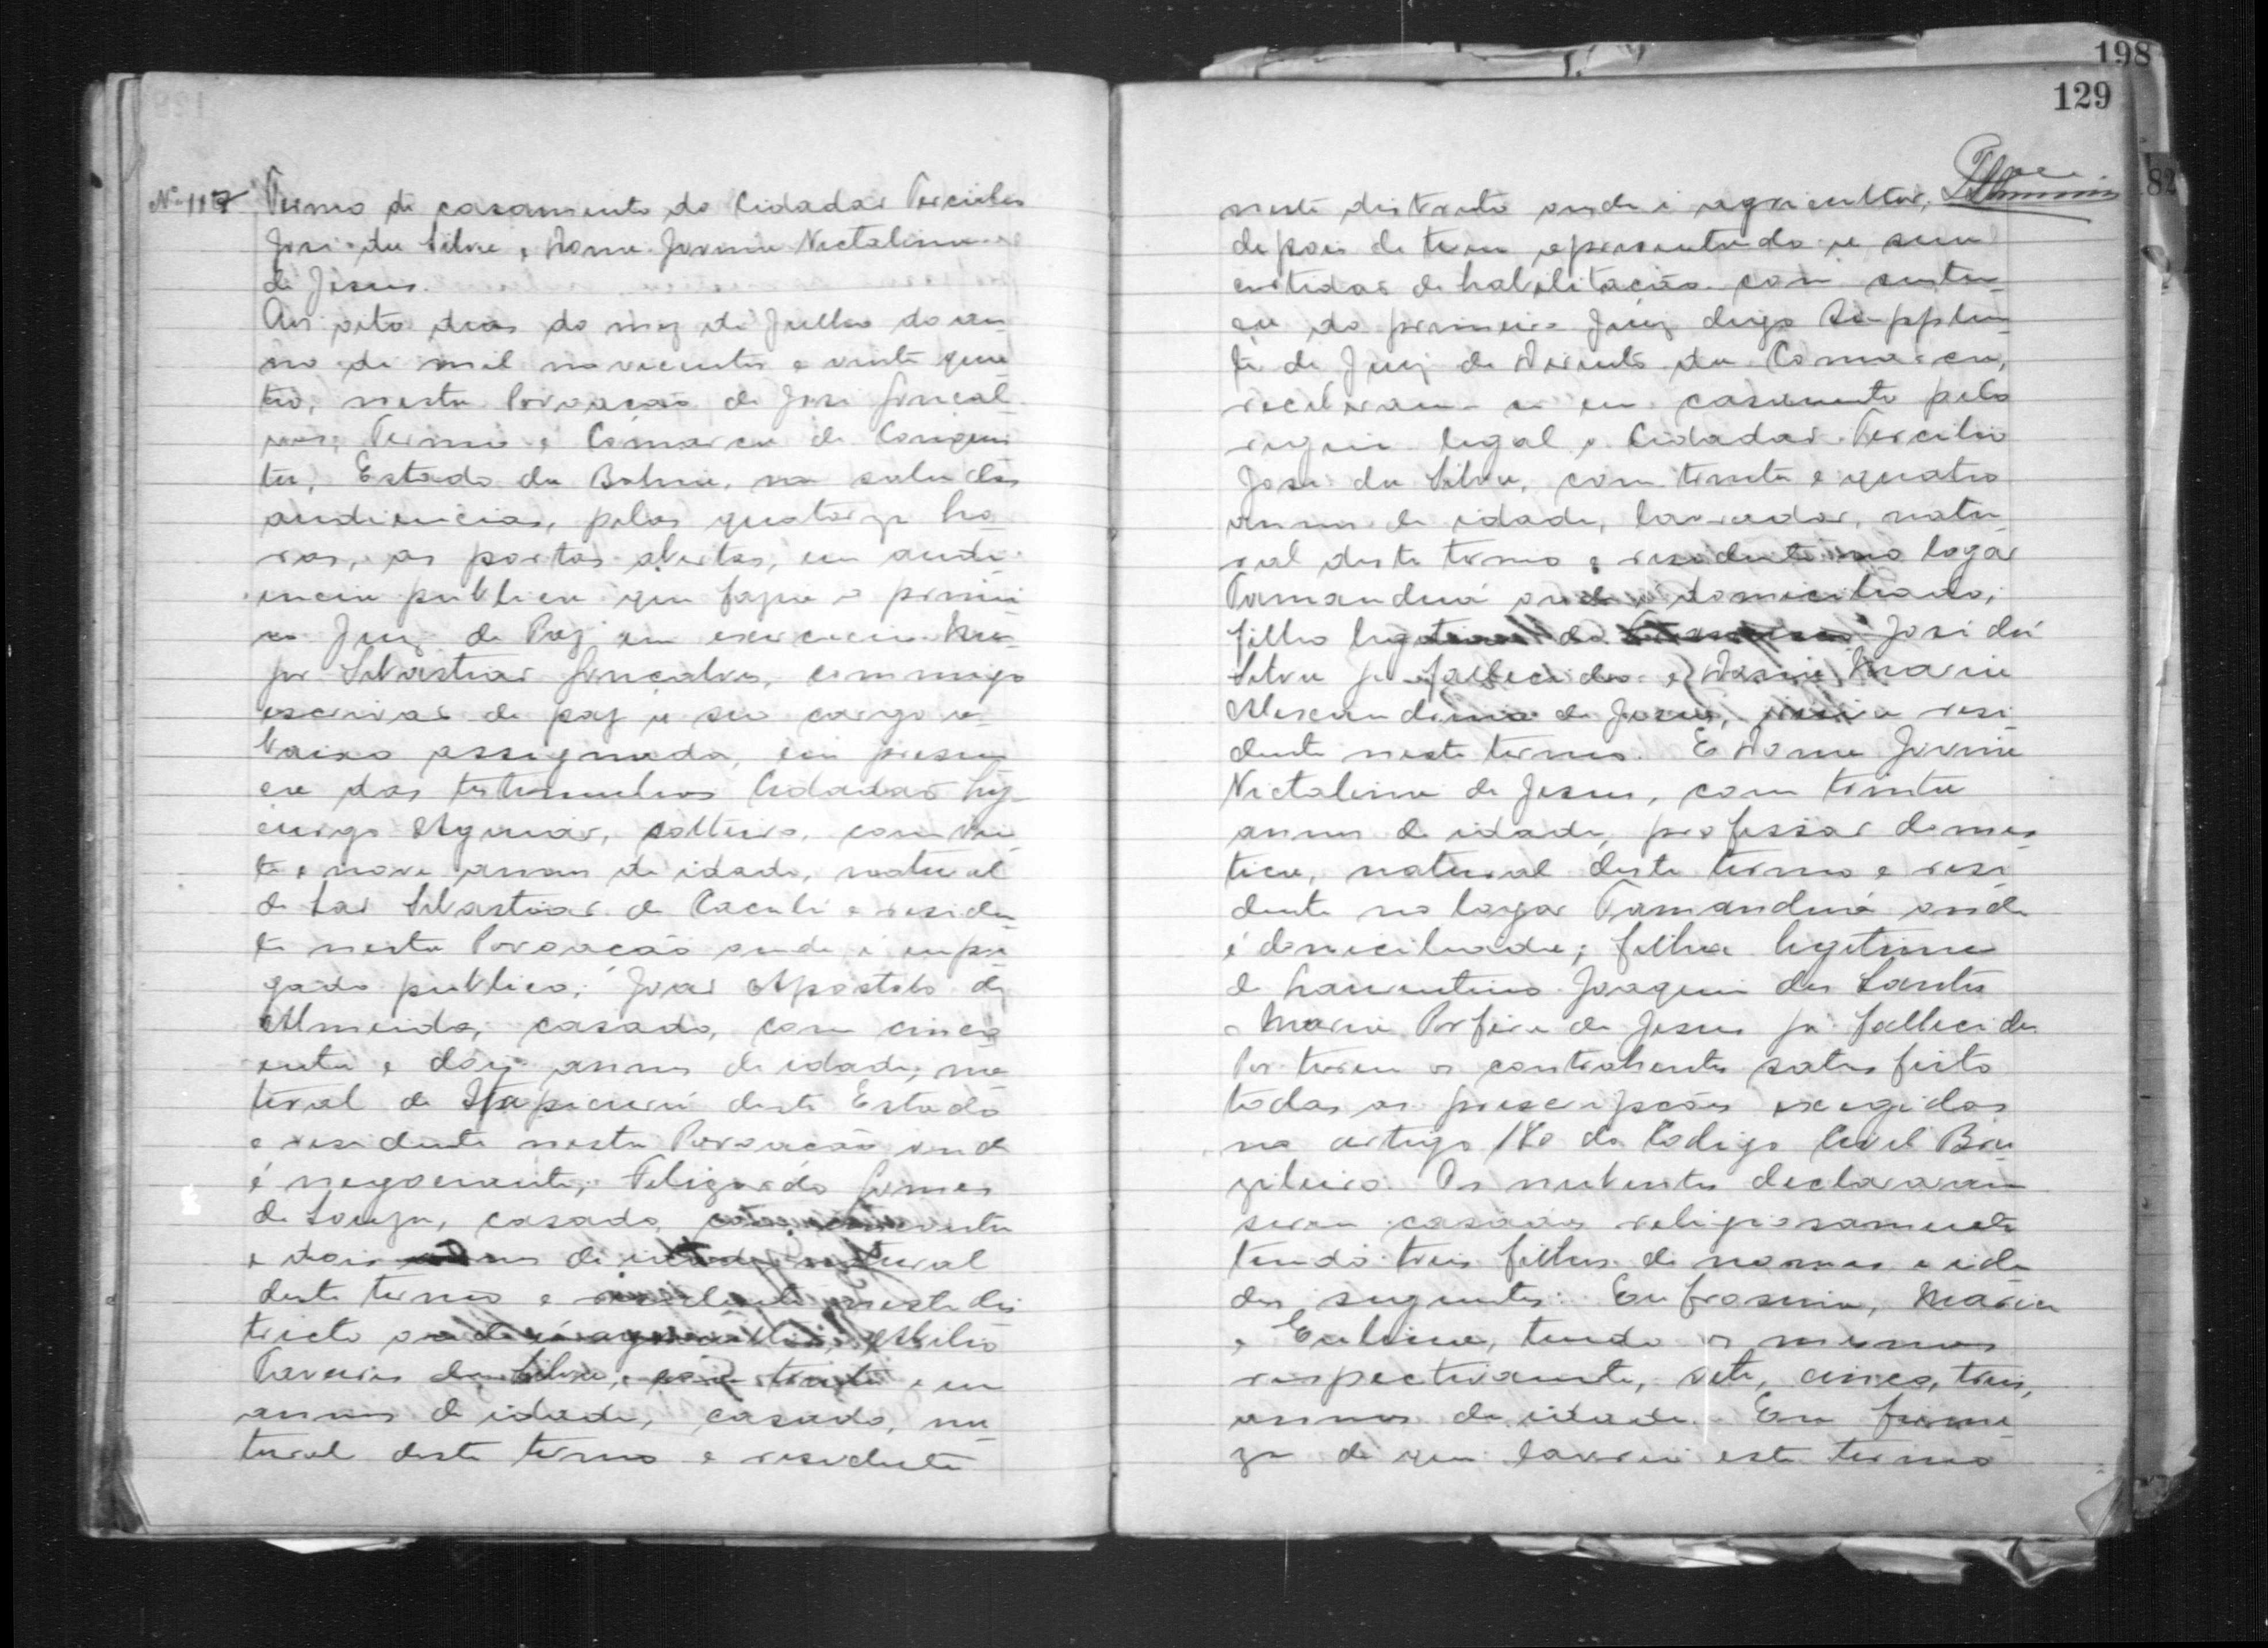 Nº 117 Termo de casamento do Cidadão Tercilio
José da Silva e Dona Jovina Nictalina
de Jesus.
Aos oito dias do mez de Julho do an-
no de mil novecentos e vinte qua-
tro, nesta Povoação de José Gonçal-
ves, Termo e Comarca de Conquis-
ta, Estado da Bahia, na sala das
audiencias, pelas quatorze ho-
ras, as portas abertas, em audi-
encia publica que fazia o primei-
ro Juiz de Paz em exercicio Ma-
jor Sebastião Gonçalves, commigo
escrivão de paz a seu cargo a-
baixo assignado, em presen-
ça das testemunhas Cidadão Ly-
curgo Aguiar, solteiro, com vin-
te e nove annos de idade, natural
de São Sebastião de Caculé e residen-
te nesta Povoação onde é empre-
gado publico; João Apostolo de
Almeida, casado, com cinco-
enta e dois annos de idade, na-
tural de Itapicurú deste Estado
e residente nesta Povoação onde
é negociante; Feligardo Gomes
de Souza, casado,
e dois annos de idade natural
deste termo e residente neste dis-
tricto onde é agricultor, Abilio
Tavares da Silva, com trinta e um
annos de idade, casado, na-
tural deste termo e residente
198
129
82
neste districto onde é agricultor,
depois de terem apresentado a sua
certidão de habilitação com senten-
ça do primeiro Juiz digo Supplen-
te de Juiz de Direito da Comarca,
receberam-se em casamento pelo
regim legal o Cidadão Tercilio
José da Silva, com trinta e quatro
annos de idade, lavrador, natu-
ral deste termo e residente no logar
Tamanduá onde é domiciliado,
filho legitimo de José da
Silva ja fallecido e Dona Maria
Alexandrina de Jesus, viuva resi-
dente neste termo. E Dona Jovina
Nictalina de Jesus, com trinta
annos de idade, professar domes-
tica, natural deste termo e resi-
dente no logar Tamanduá onde
é domiciliada; filha legitima
de Laurentino Joaquim dos Santos
e Maria Porfira de Jesus ja fallecidos
Por terem os contrahentes satisfeito
todas as prescripções exegidas
no artigo 180 do Codigo Civil Bra-
zileiro. Os nubentes declararam
serem casados religiosamente
tendo treis filhos de nomes e ida-
des seguentes: Eufrosina, Maria
e Eulina, tendo os mesmos
respectivamente, sete, cinco, treis,
annos de idade. Em firme-
za de que lavrei este termo